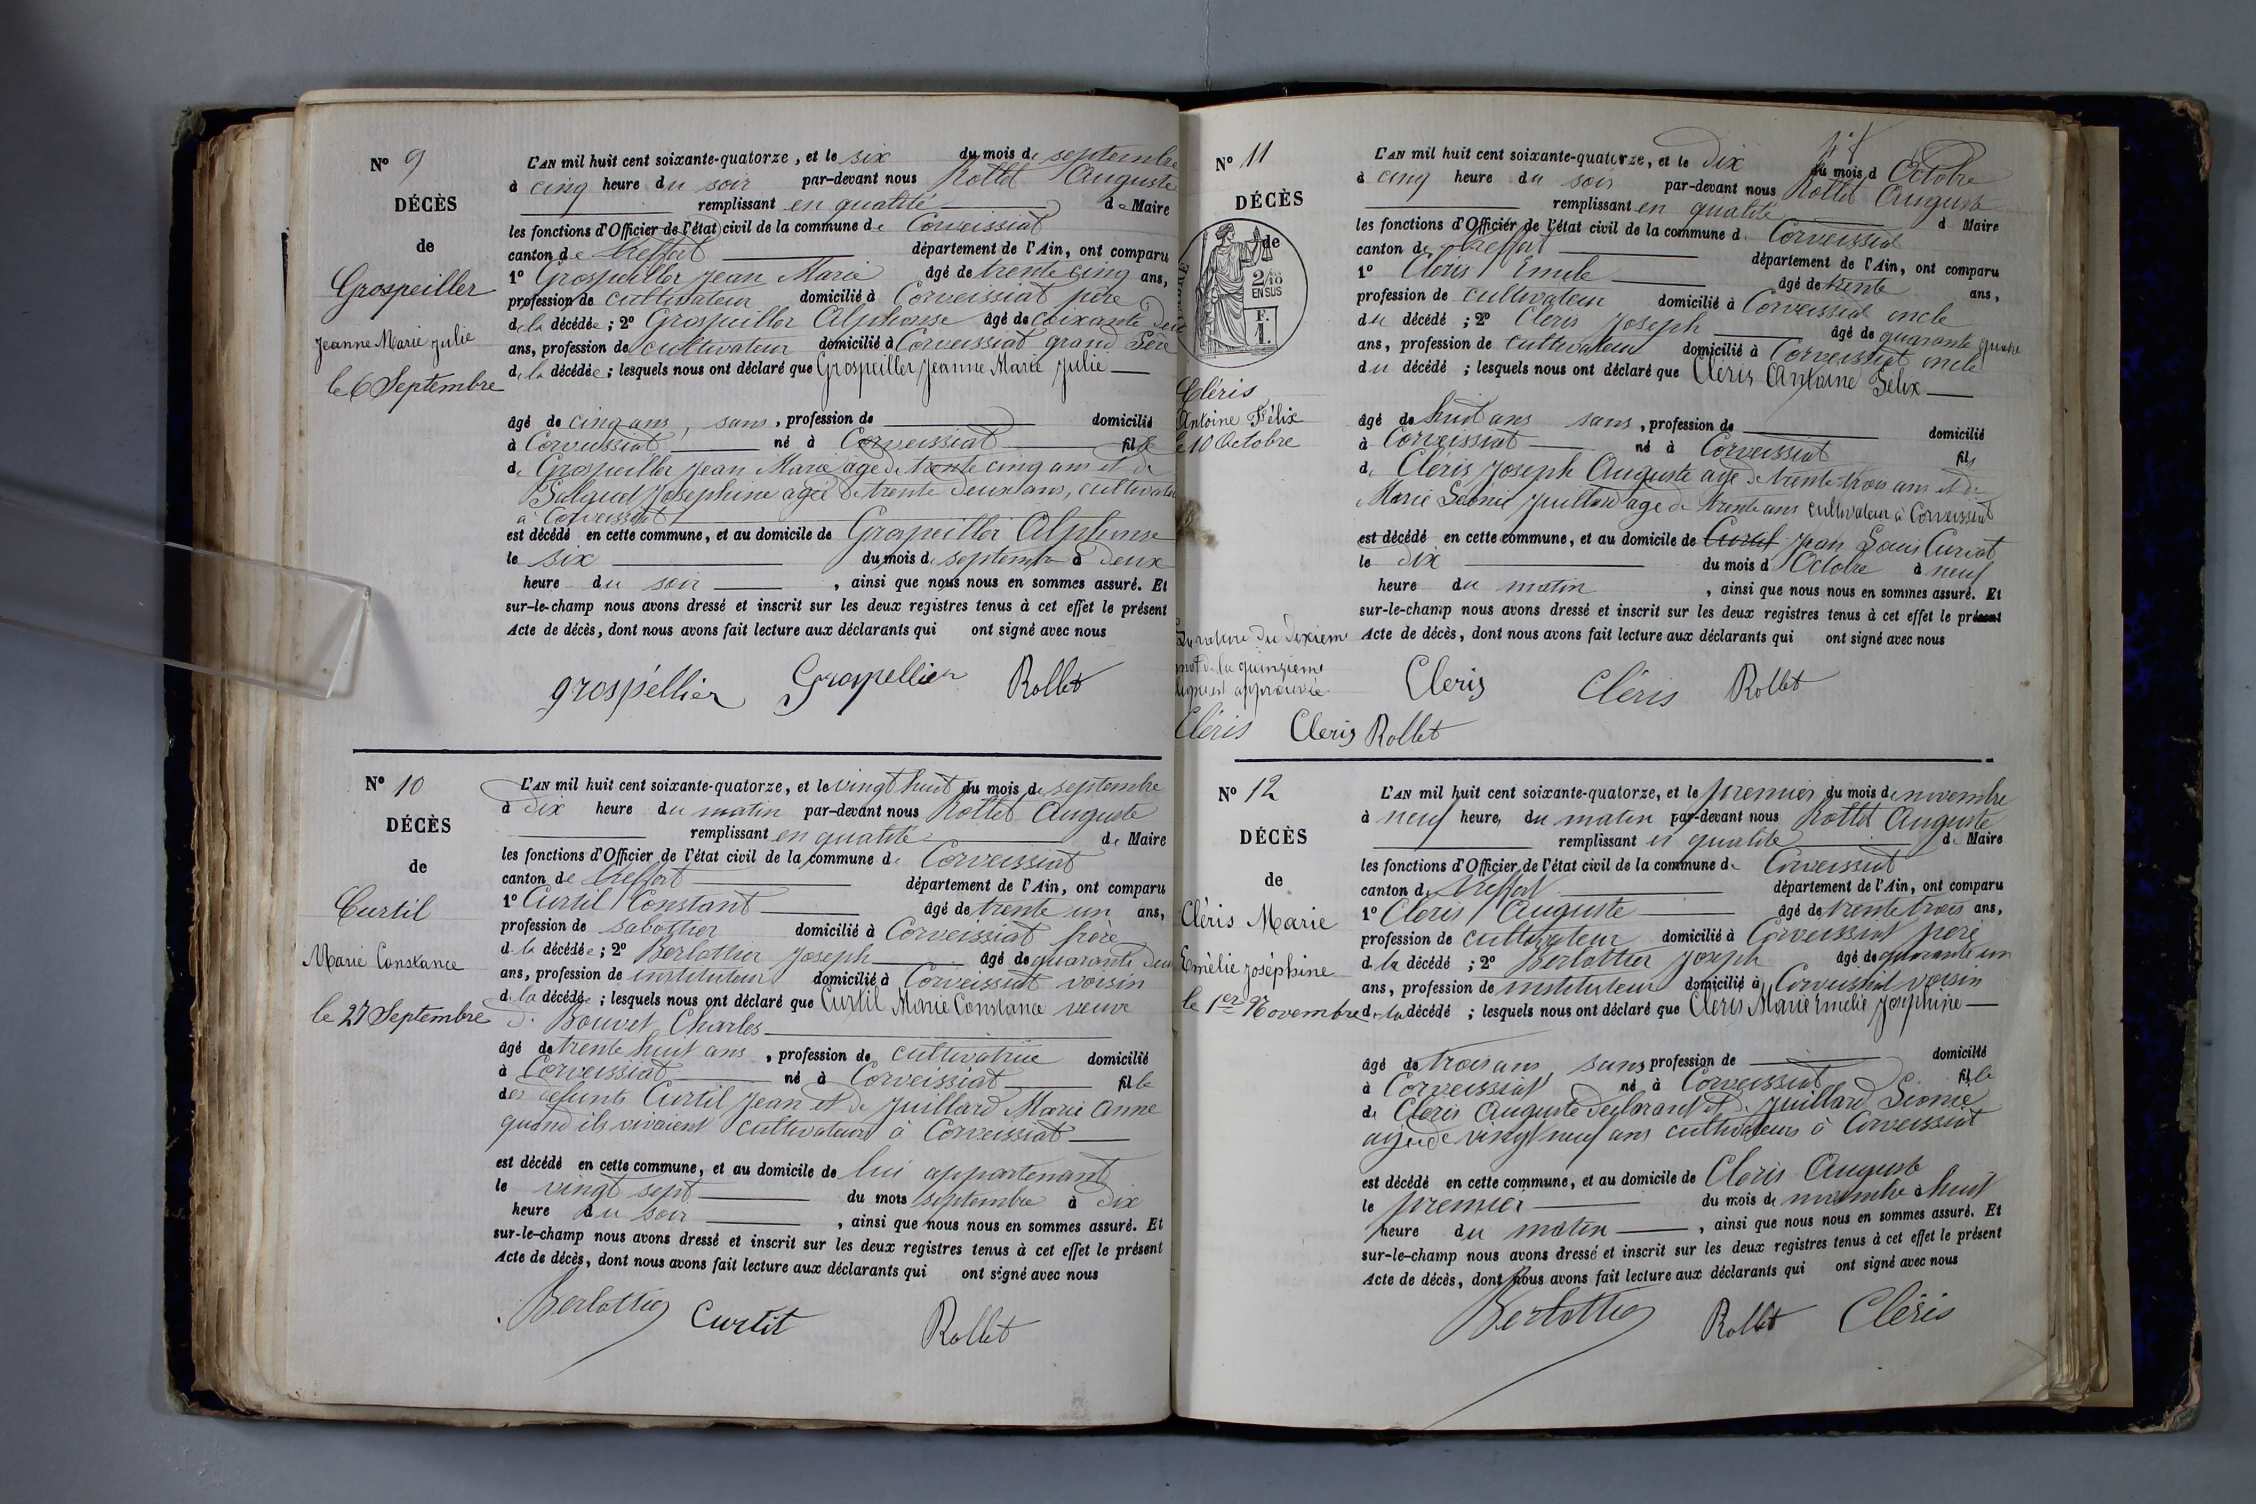 N° 9
DÉCÈS
de
Grospeiller
Jeanne Marie Julie
le 6 Septembre
L'AN mil huit cent soixante-quatorze, et le six du mois de septembre
à cinq heure du soir par-devant nous Rollet Auguste
remplissant en qualité de Maire
les fonctions d'Officier de l'état civil de la commune de Corveissiat
canton de Treffort département de l'Ain, ont comparu
1° Grospeiller Jean Marie âgé de trente cinq ans,
profession de cultivateur domicilié à Corveissiat père
de la décédée ; 2° Grospeiller Alphonse âgé de soixante deux
ans, profession de cultivateur domicilié à Corveissiat grand Père
de la décédée ; lesquels nous ont déclaré que Grospeiller Jeanne Marie Julie
âgé de cinq ans, sans, profession de domicilié
à Corveissiat né à Corveissiat fille
de Grospeiller Jean Marie age de trente cinq ans et de
Josephine agée de trente deux ans, cultivateurs
à Corveissiat
est décédé en cette commune, et au domicile de Grospeiller Alphonse
le six du mois de septembre à deux
heure du soir, ainsi que nous nous en sommes assuré. Et
sur-le-champ nous avons dressé et inscrit sur les deux registres tenus à cet effet le présent
Acte de décès, dont nous avons fait lecture aux déclarants qui ont signé avec nous
grospéllier Grospellier Rollet
N° 10
DÉCÈS
de
Curtil
Marie Constance
le 27 Septembre
L'AN mil huit cent soixante-quatorze, et le vingt huit du mois de septembre
à dix heure du matin par-devant nous Rollet Auguste
remplissant en qualité de Maire
les fonctions d'Officier de l'état civil de la commune de Corveissiat
canton de Treffort département de l'Ain, ont comparu
1° Curtil Constant âgé de trente un ans,
profession de sabottier domicilié à Corveissiat frère
de la décédée ; 2° Berlottier Joseph âgé de quarante deux
ans, profession de instituteur domicilié à Corveissiat voisin
de la décédée ; lesquels nous ont déclaré que Curtil Marie Constance veuve
de Bouvet Charles
âgé de trente huit ans, profession de cultivatrice domicilié
à Corveissiat né à Corveissiat fille
des défunts Curtil Jean et de Juillard Marie Anne
quand ils vivaient cultivateurs à Corveissiat
est décédé en cette commune, et au domicile de lui appartenant
le vingt sept du mois septembre à dix
heure du soir, ainsi que nous nous en sommes assuré. Et
sur-le-champ nous avons dressé et inscrit sur les deux registres tenus à cet effet le présent
Acte de décès, dont nous avons fait lecture aux déclarants qui ont signé avec nous
Berlottier Curtil Rollet
N° 11
DÉCÈS
de
2/10
EN SUS
F.
1.
Cléris
Antoine Félix
le 10 Octobre
L'AN mil huit cent soixante-quatorze, et le dix du mois d Octobre
à cinq heure du soir par-devant nous Rollet Auguste
remplissant en qualité d Maire
les fonctions d'Officier de l'état civil de la commune d. Corveissiat
canton de Treffort département de l'Ain, ont comparu
1° Cléris Emile âgé de trente ans,
profession de cultivateur domicilié à Corveissiat oncle
du décédé ; 2° Cleris Joseph âgé de quarante quatre
ans, profession de cultivateur domicilié à Corveissiat oncle
du décédé ; lesquels nous ont déclaré que Cléris Antoine Félix
âgé de huit ans sans, profession de domicilié
à Corveissiat né à Corveissiat fils
de Cléris Joseph Auguste age de trente trois ans et de
Marie Léonie Juillard age de trente ans cultivateur à Corveissiat
est décédé en cette commune, et au domicile de Curtil Jean Louis Curvat
le dix du mois d'Octobre à neuf
heure du matin, ainsi que nous nous en sommes assuré. Et
sur-le-champ nous avons dressé et inscrit sur les deux registres tenus à cet effet le présent
Acte de décès, dont nous avons fait lecture aux déclarants qui ont signé avec nous
La rature du dixieme
mot de la quinzieme
ligne est approuvée
Cleris Cléris Rollet
Cléris Cleris Rollet
N° 12
DÉCÈS
de
Cléris Marie
Emèlie Joséphine
le 1er Novembre
L'AN mil huit cent soixante-quatorze, et le premier du mois de novembre
à neuf heure, du matin par-devant nous Rollet Auguste
remplissant en qualité de Maire
les fonctions d'Officier de l'état civil de la commune de Corveissiat
canton de Treffort département de l'Ain, ont comparu
1° Cléris Auguste âgé de trente trois ans,
profession de cultivateur domicilié à Corveissiat père
de la décédé ; 2° Berlottier Joseph âgé de quarante un
ans, profession de instituteur domicilié à Corveissiat voisin
de la décédé ; lesquels nous ont déclaré que Cléris Marie Emelie Joséphine
âgé de trois ans, sans profession de domicilié
à Corveissiat né à Corveissiat fille
de Cleris Auguste declarant et de Juillard Léonie
agée de vingt neuf ans cultivateurs à Corveissiat
est décédé en cette commune, et au domicile de Cleris Auguste
le premier du mois de novembre à huit
heure du matin, ainsi que nous nous en sommes assuré. Et
sur-le-champ nous avons dressé et inscrit sur les deux registres tenus à cet effet le présent
Acte de décès, dont nous avons fait lecture aux déclarants qui ont signé avec nous
Berlottier Rollet Cléris